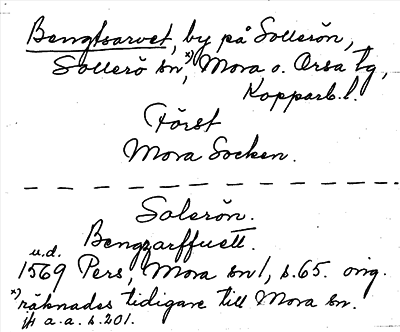 Bengtsarvet, by på Sollerön,
Sollerö sn,x) Mora o. Orsa tg,
Kopparb. l.
Först
Mora Socken.
Solerön.
Bengzarffuett.
u.d.
1569 Pers, Mora sn 1, s. 65. orig.
x) räknades tidigare till Mora sn.
jfr a.a. s. 201.